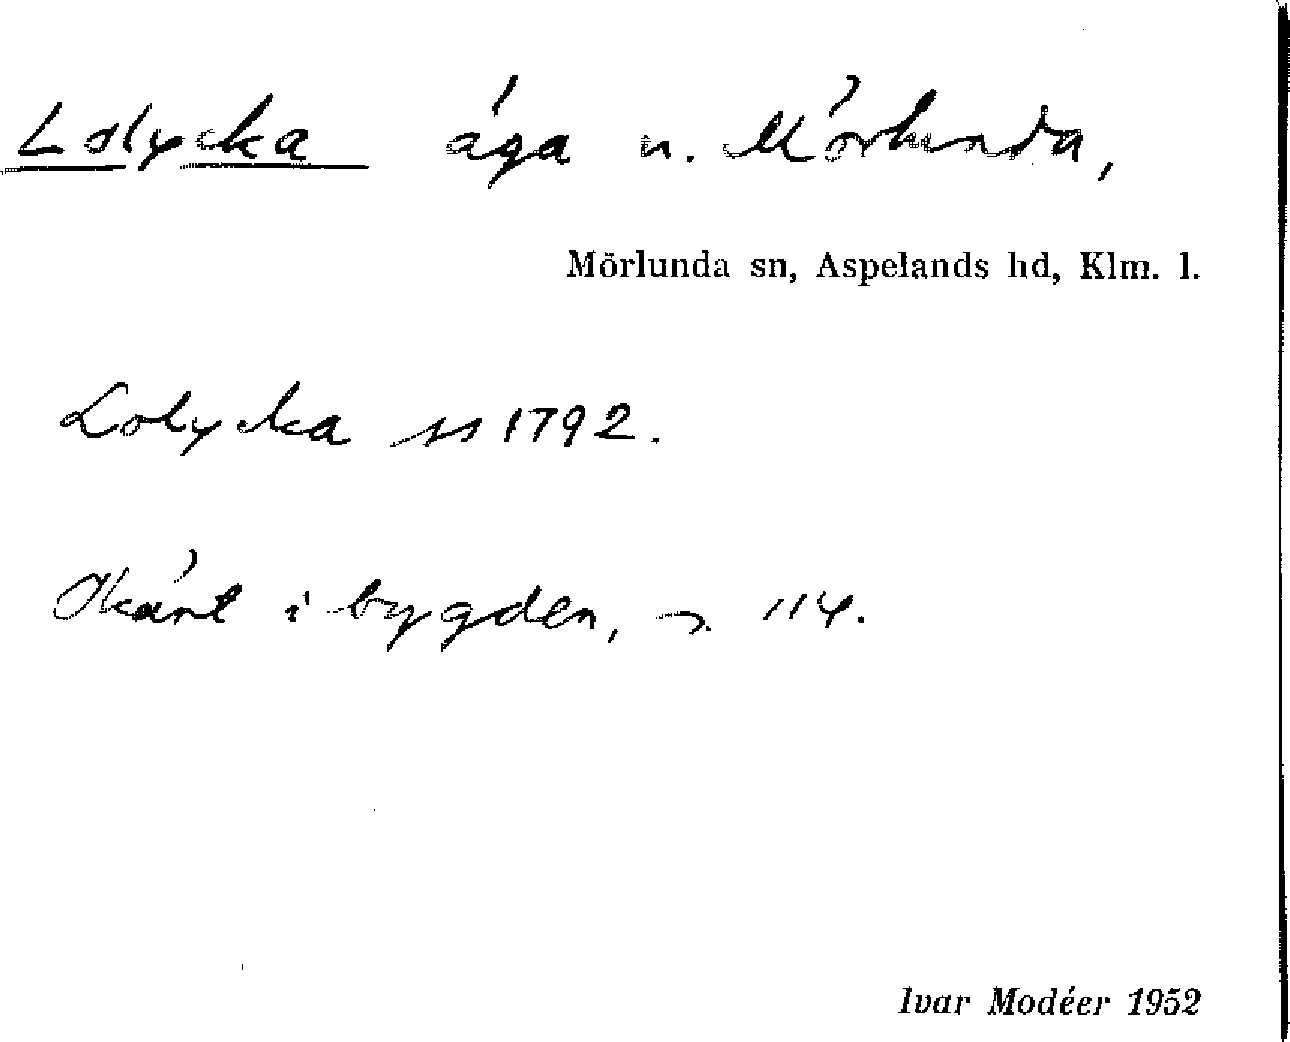 Lolycka äga u. Mörlunda,
Mörlunda sn, Aspelands hd, Klm. l.
Lolycka ss 1792.
Okänt i bygden, 114.
Ivar Modéer 1952